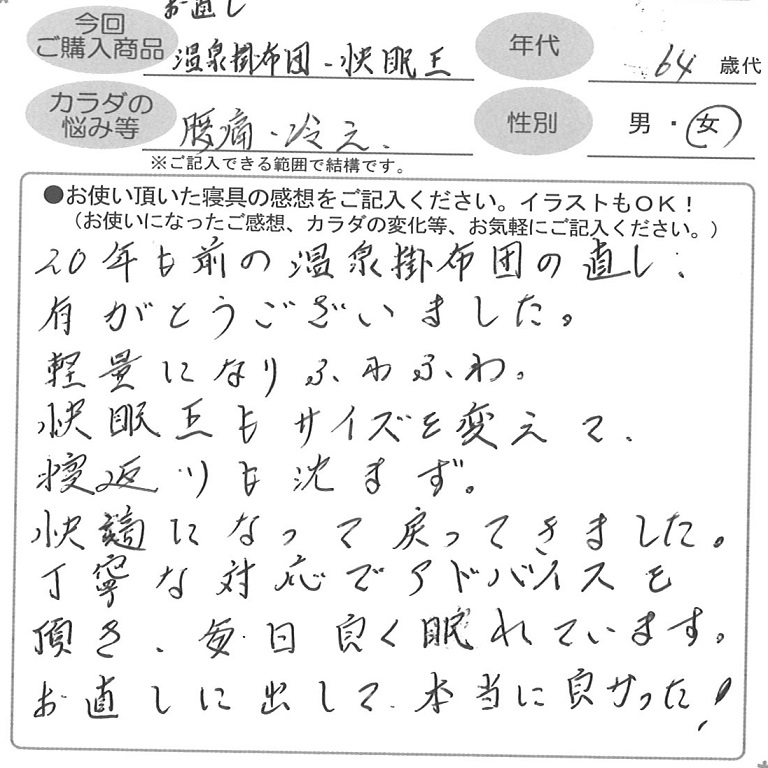 お直し
今回
ご購入商品
温泉掛布団・快眠王
年代
64 歳代
カラダの
悩み等
腰痛・冷え、
性別
男・女
※ご記入できる範囲で結構です。
●お使い頂いた寝具の感想をご記入ください。イラストもOK！
（お使いになったご感想、カラダの変化等、お気軽にご記入ください。）
20年も前の温泉掛布団の直し、
有がとうございました。
軽量になりふわふわ。
快眠王もサイズを変えて、
寝返りも沈まず。
快調になって戻ってきました。
丁寧な対応でアドバイスを
頂き、毎日良く眠れています。
お直しに出して、本当に良かった！